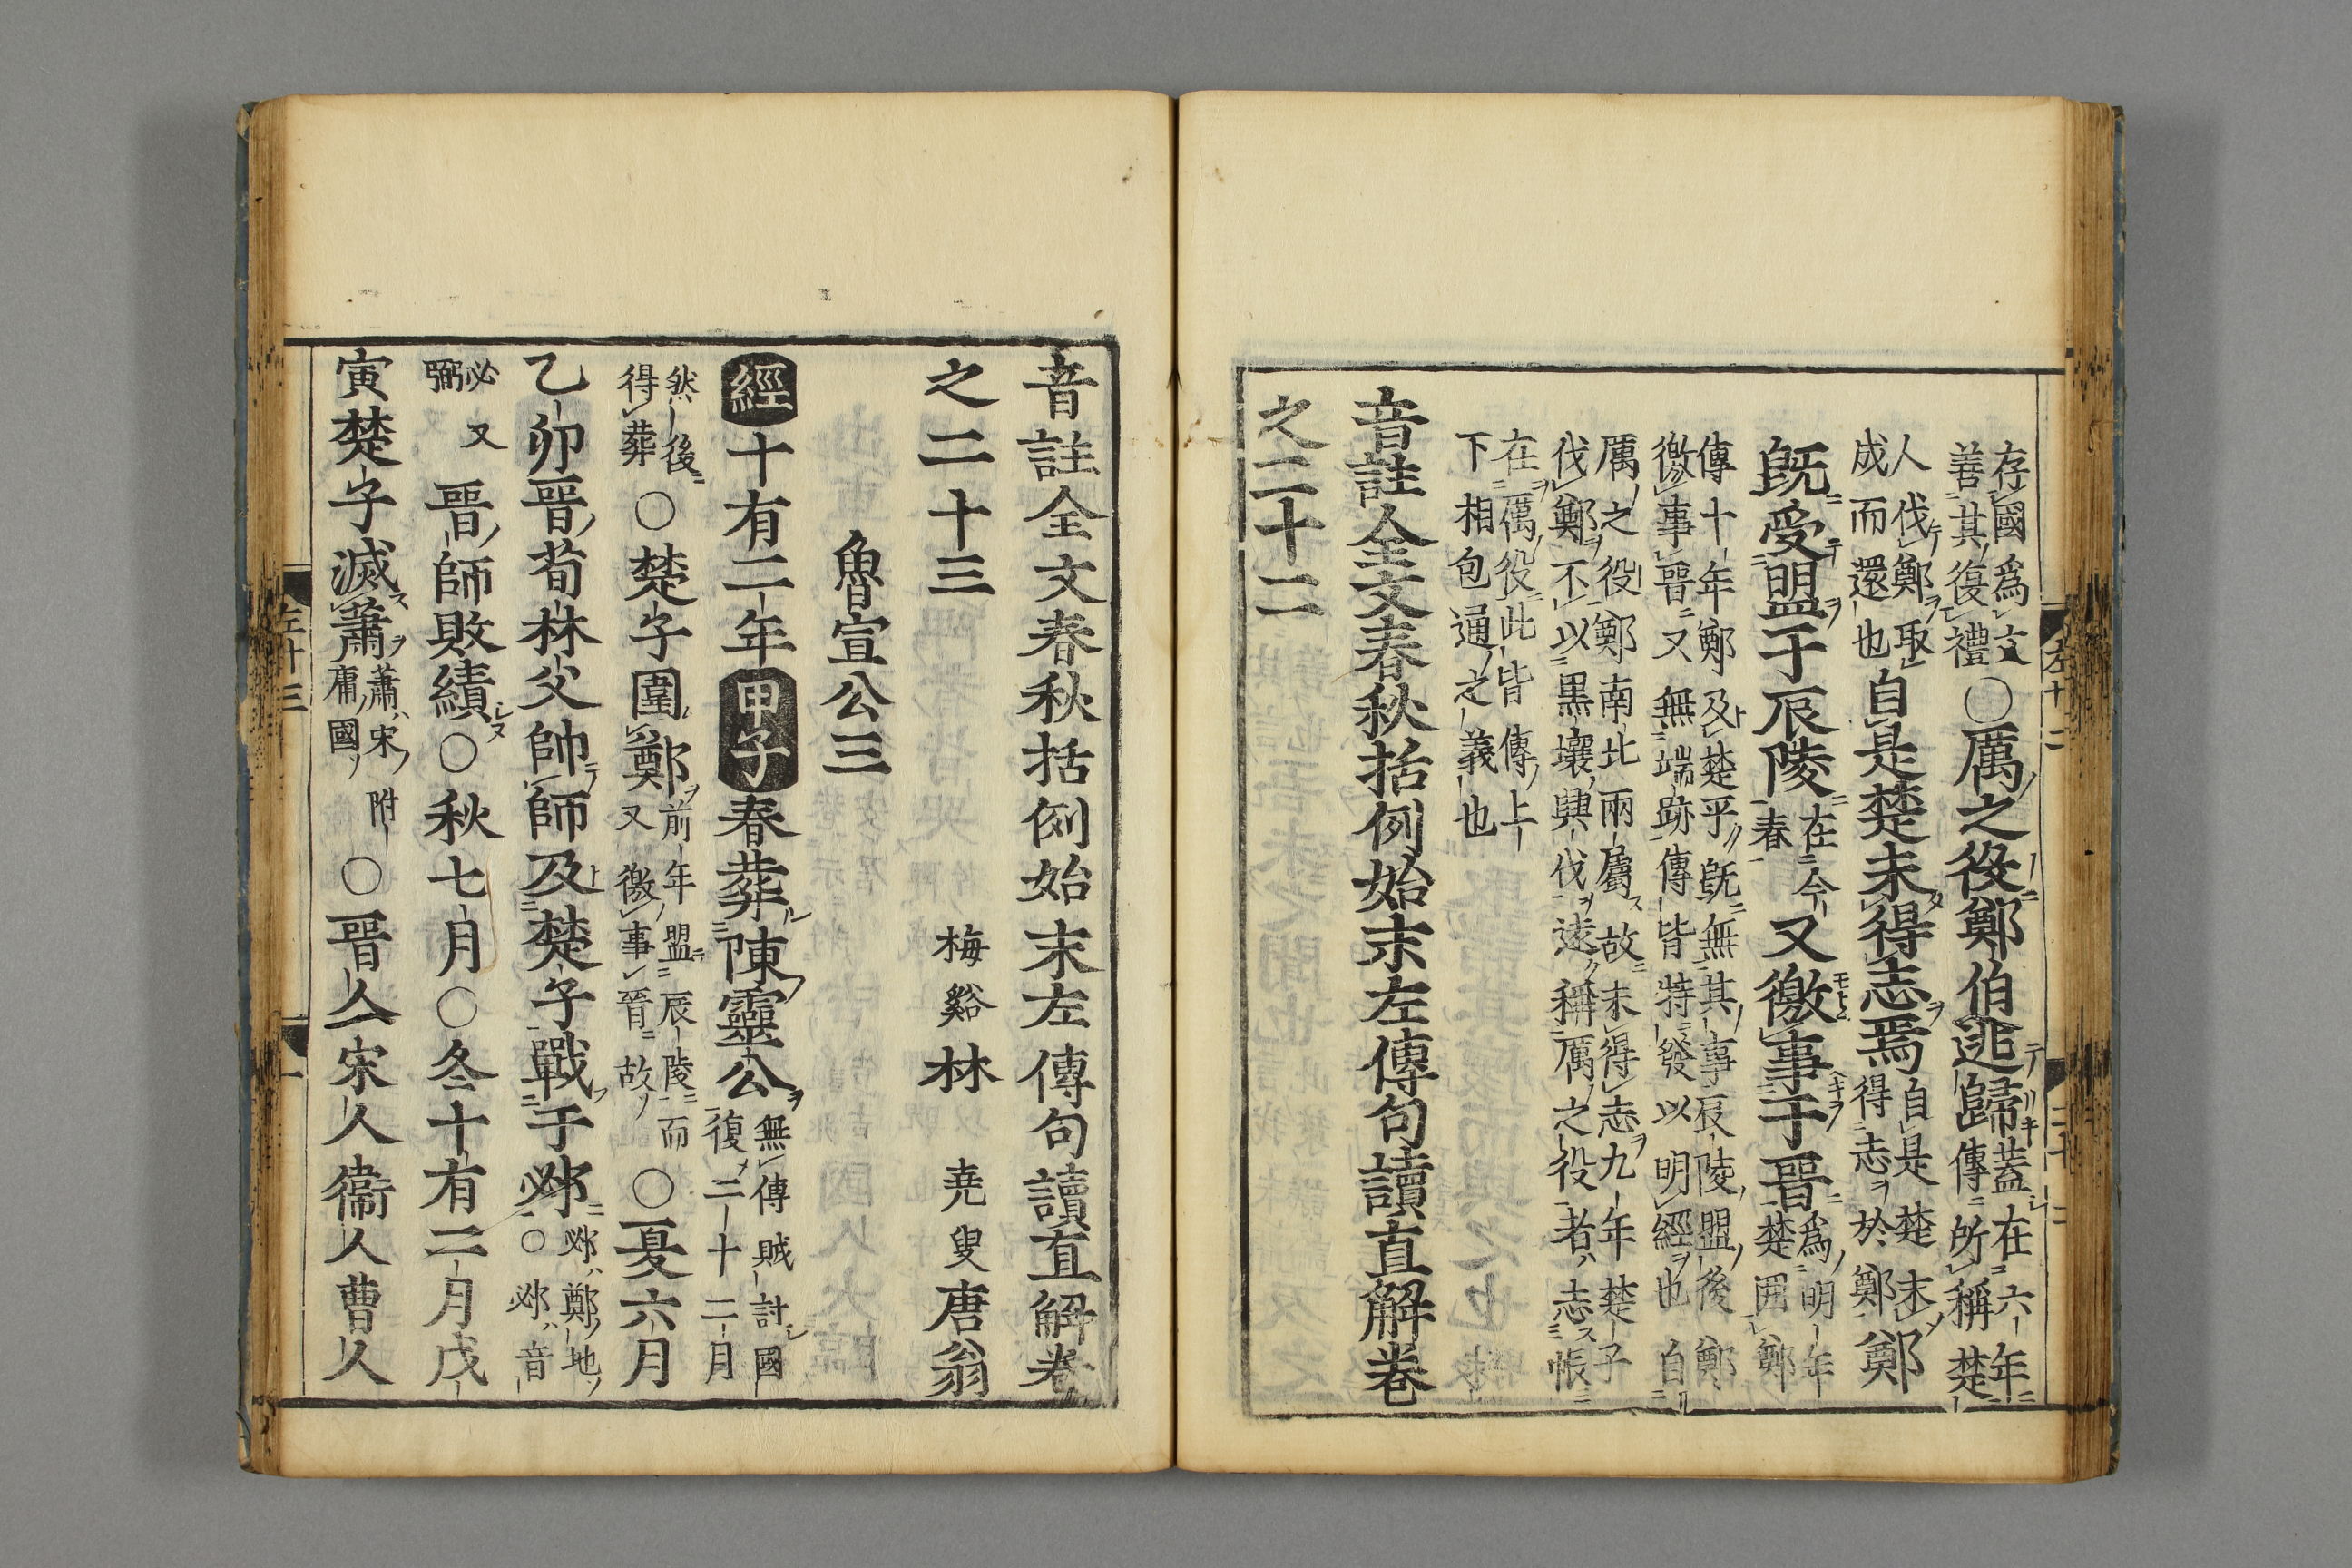 存國爲文
善其復禮
○厲之役鄭伯逃歸
蓋在六年
傳所稱楚
人伐鄭取
成而還也
自是楚未得志焉
自是楚未
得志於鄭
鄭
既受盟于辰陵
在今
春
又徼事于晉
爲明年
楚囲鄭
傳十年鄭及楚平既無其事辰陵盟後鄭
徼事晉又無端跡傳皆特發以明經也自
厲之役鄭南北兩屬故未得志九年楚子
伐鄭不以黒壤興伐遠稱厲之役者志帳
在厲役此皆傳上
下相包通之義也
音註全文春秋括例始末左傳句讀直解卷
之二十二
左十二
音註全文春秋括例始末左傳句讀直解卷
之二十三 梅谿林 堯叟唐翁
魯宣公三
經十有二年甲子春葬陳靈公
無傳賊討國
復二十二月
然後
得葬
○楚子圍鄭
前年盟辰陵而
又徼事晉故
○夏六月
乙卯晉荀林父帥師及楚子戰于邲
邲鄭地
○邲音
必又
弼
晉師敗績○秋七月○冬十有二月戊
寅楚子滅蕭
蕭宋附
庸國
○晉人宋人衞人曹人
左十三
一